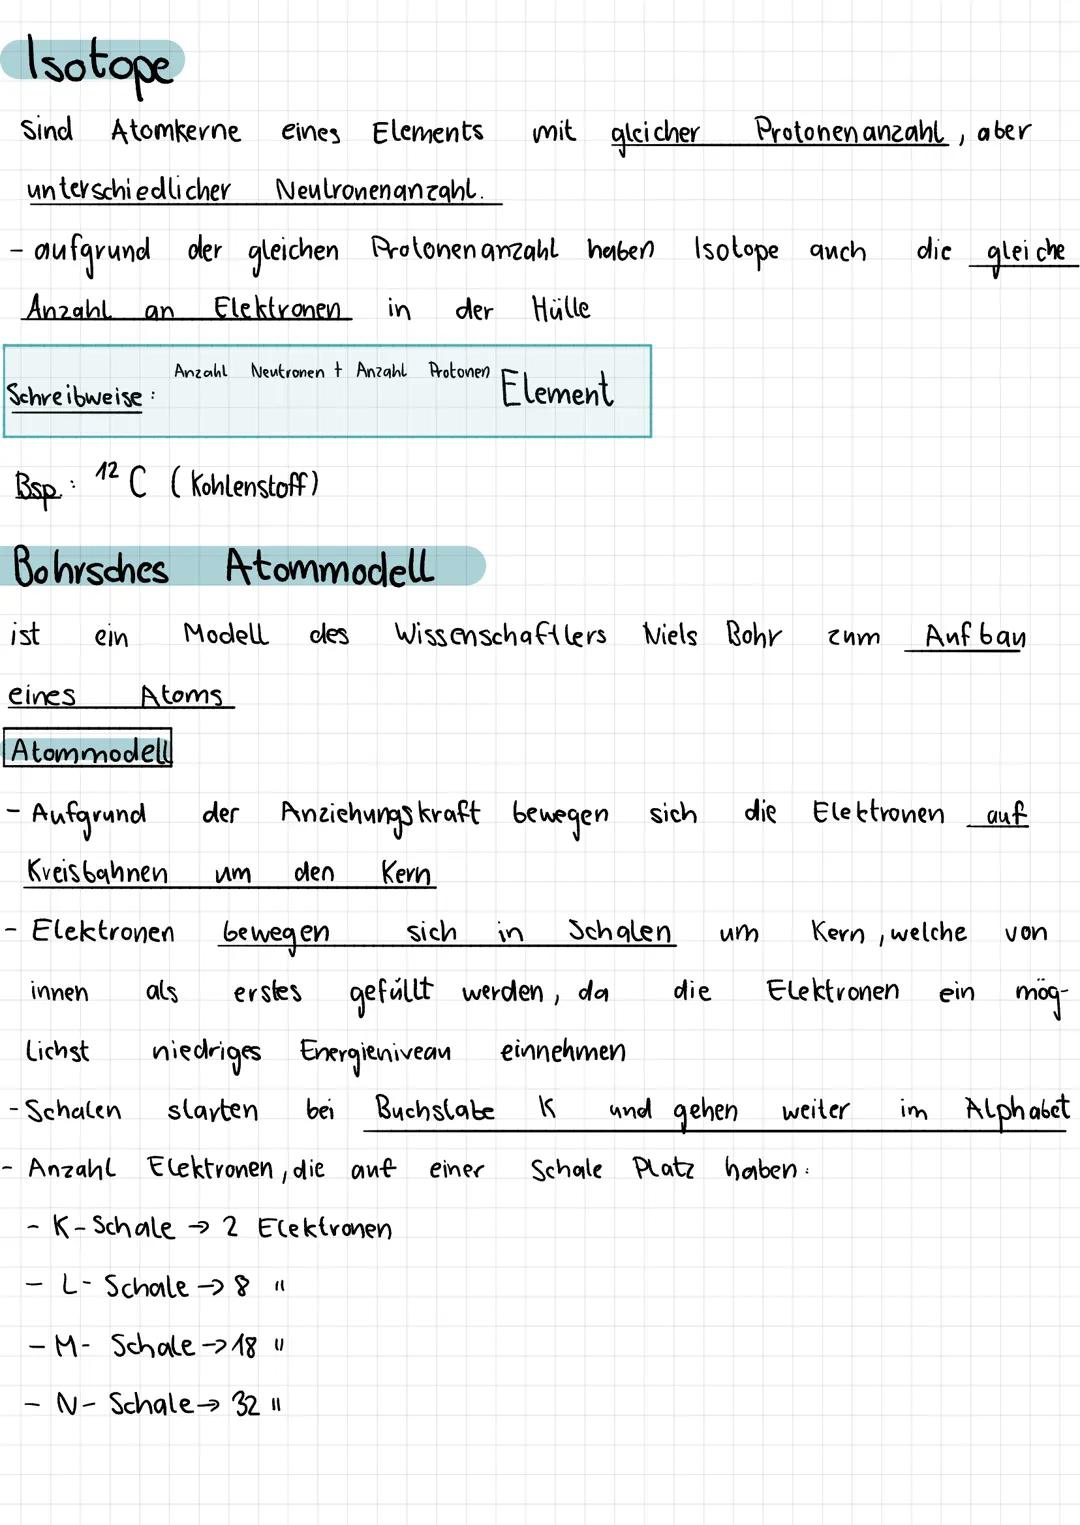 Isotope
sind Atomkerne eines Elements mit gleicher Protonenanzahl, aber
unterschiedlicher Neutronenanzahl.
- aufgrund der gleichen Protonenanzahl haben Isotope auch die gleiche
Anzahl an Elektronen in der Hülle
Schreibweise: Anzahl Neutronen + Anzahl Protonen Element
Bsp.: ¹²C (Kohlenstoff)
Bohrsches Atommodell
ist ein Modell des Wissenschaftlers Niels Bohr zum Aufbau
eines Atoms
Atommodell
- Aufgrund der Anziehungskraft bewegen sich die Elektronen auf
Kreisbahnen um den Kern
- Elektronen bewegen sich in Schalen um Kern, welche von
innen als erstes gefüllt werden, da die Elektronen ein mög-
lichst niedriges Energieniveau einnehmen
- Schalen starten bei Buchstabe K und gehen weiter im Alphabet
- Anzahl Elektronen, die auf einer Schale Platz haben:
- K-Schale → 2 Elektronen
- L-Schale → 8 "
- M-Schale → 18 "
- N-Schale → 32 "